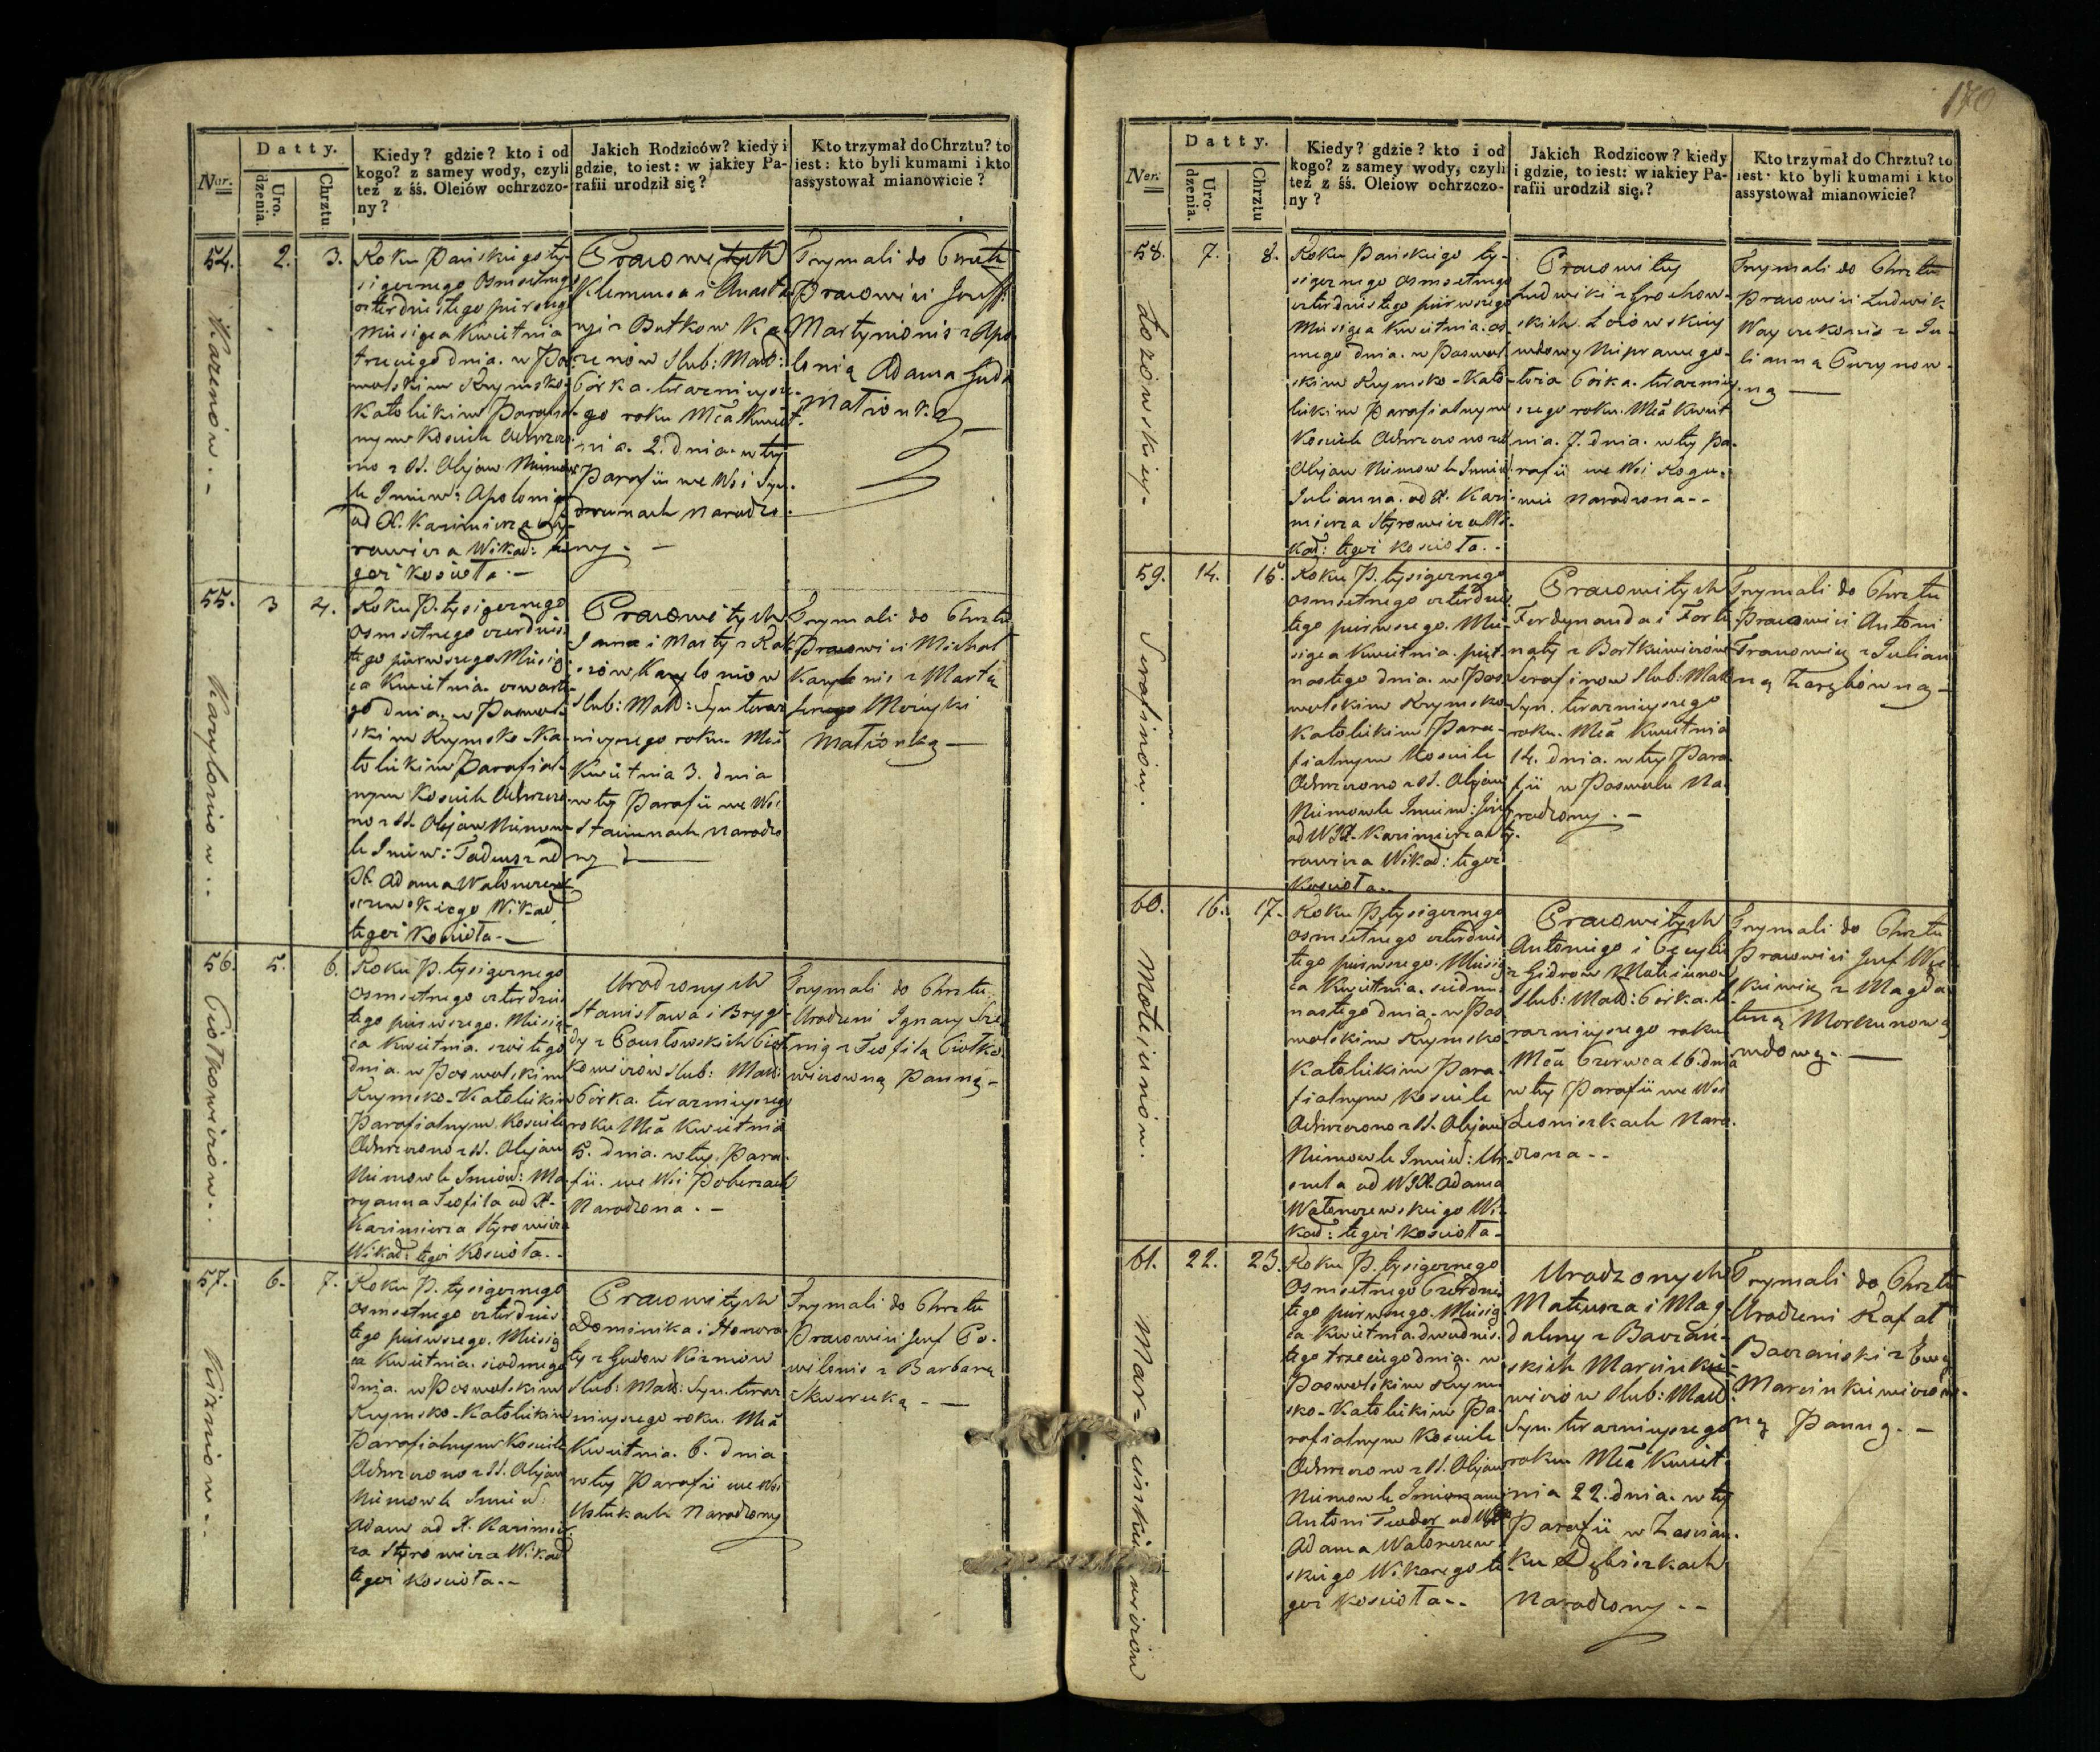 Ner.
Datty.
Uro.
dzenia.
Chrztu
Kiedy? gdzie? kto i od
kogo? z samey wody, czyli
też z śś. Oleiów ochrzczo-
ny?
Jakich Rodziców? kiedy i
gdzie, to iest: w jakiey Pa-
rafii urodził się?
Kto trzymał do Chrztu? to
iest: kto byli kumami i kto
assystował mianowicie?
54. 2. 3.
Roku Pańskiego ty-
siącznego Osmsetnego
czterdziestego pierwszego
Miesiąca Kwietnia
trzeciego dnia. w Po
wolskim Rzymsko-
Katolickim Parafial-
nym Kosciele Ochrzczo
no z SS. Olejow Niemow
le Imieniem: Apolonia
od X. Kazimierza Sty-
rowicza Wikad: te-
goż Koscioła. —
Pracowitych
Klemensa i Anasta
zyi z Butkow Ka
zenów Slub: Małż:
Córka. teraznieysze-
go roku Mca Kwiet-
nia. 2. dnia. w tey
Parafii we Wsi
narodzo
ny. —
Trzymali do Chrztu
Pracowici Jozeff
Martynionis z Apo
lonią Adama
Małżonką —
55. 3 4.
Roku P. tysiącznego
Osmsetnego czterdzies-
tego pierwszego Miesią
ca Kwietnia. czwarte
go dnia. w Poswol-
skim Rzymsko-Ka-
tolickim Parafial-
nym Kosciele Ochrzczo
no z SS. Olejow Niemow-
le Imiew: Tadeusz od
X. Adama
Wikad
tegoż Kosciola. —
Pracowitych
Jana i Marty z
Karyloniow
Slub: Małż: Syn teraz
nieyszego roku. Mca
Kwietnia 3. dnia
w tey Parafii we Wsi
Staniunach narodzo
ny —
Trzymali do Chrztu
Pracowici Michał
Karylonis z Martą
Małżonką —
56. 5. 6.
Roku P. tysiącznego
Osmsetnego czterdzies
tego pierwszego. Miesią
ca Kwietnia. szóstego
dnia. w Poswolskim
Rzymsko-Katolickim
Parafialnym Kosciele
Ochrzczono z SS. Olejow
Niemowle Imiew: Ma
ryanna Teofila od X.
Kazimierza Styrowicza
Wikad: tegoż Kosciola. -
Urodzonych
Stanisława i Bryg
dy z Ciot
kowiczów Slub: Małż:
Córka. teraznieyszego
roku Mca Kwietnia
5. dnia. w tey Para-
fii. we Wsi Poberzach
Narodzona. -
Trzymali do Chrztu
Urodzeni Ignacy
z Teofilą Ciotko
wiczowną Panną -
57. 6. 7.
Roku P. tysiącznego
Osmsetnego czterdzies
tego pierwszego. Miesią
ca Kwietnia. siodmego
dnia. w Poswolskim
Rzymsko-Katolickim
Parafialnym Kosciele
Ochrzczono z SS. Olejow
Niemowle Imiew:
Adam od X. Kazimier
za Styrowicza Wikad
tegoż Kosciola. -
Pracowitych
Dominika i Honora
ty z Gudow Kizniow
Slub: Małż: Syn. teraz
nieyszego roku. Mca
Kwietnia. 6. dnia
w tey Parafii we Wsi
Ustukach Narodzony
Trzymali do Chrztu
Pracowici Jozef Po-
wilonis z Barbarą
Skwerecką -
Kazenów. -
Karyloniow. .
Ciotkowiczów. .
Kizniow. .
170
Ner.
Datty.
Uro-
dzenia.
Chrztu
Kiedy? gdzie? kto i od
kogo? z samey wody, czyli
też z śś. Oleiow ochrzczo-
ny?
Jakich Rodzicow? kiedy
i gdzie, to iest: w iakiey Pa-
rafii urodził się?
Kto trzymał do Chrztu? to
iest: kto byli kumami i kto
assystował mianowicie?
58. 7. 8.
Roku Pańskiego ty-
siącznego Osmsetnego
czterdziestego pierwszego
Miesiąca Kwietnia. os
mego dnia. w Poswol
skim Rzymsko-Kato
lickim Parafialnym
Kosciele Ochrzczono z SS
Olejow Niemowle Imiew
Julianna. od X. Kazi-
mierza Styrowicza Wi-
kad: tegoż Kosciola. .
Pracowitey
Ludwiki z Grochow-
skich. Lozowskiey
wdowy Nieprawego
łoża Córka. teraznie
szego roku. Mca Kwiet
nia. 7. dnia. w tey Pa-
rafii we Wsi
Narodzona - -
Trzymali do Chrztu
Pracowici Ludwik
z Ju-
lianną
ną —
59. 14. 15.
Roku P. tysiącznego
Osmsetnego czterdzies
tego pierwszego. Mie-
siąca Kwietnia. pięt-
nastego dnia. w Pos
wolskim Rzymsko
Katolickim Para-
fialnym Kosciele
Ochrzczono z SS. Olejow
Niemowle Imiew: Jozef
od WJX. Kazimierza Sty-
rowicza Wikad: tegoż
Kosciola. .
Pracowitych
Ferdynanda i Fortu
naty z Bartkiewiczów
Serafinow Slub: Małż
Syn. teraznieyszego
roku. Mca Kwietnia
14. dnia. w tey Para
fii w Poswolu Na-
rodzony. -
Trzymali do Chrztu
Pracowici Antoni
z Julian
ną Zarębówną -
60. 16. 17.
Roku P. tysiącznego
Osmsetnego czterdzies
tego pierwszego. Miesią
ca Kwietnia. siedm-
nastego dnia. w Pos
wolskim Rzymsko
Katolickim Para-
fialnym Kosciele
Ochrzczono z SS. Olejow
Niemowle Imiew: Ur-
szula od WJX. Adama
Wi-
kad: tegoż Kosciola -
Pracowitych
Antoniego i Cecylii
z Gidrow Motieiunow
Slub: Małż: Córka. te
raznieyszego roku
Mca Czerwca 16. dnia
w tey Parafii we Wsi
Naro-
dzona - -
Trzymali do Chrztu
Pracowici Jozef
z Magda
leną Morkunową
wdową. —
61. 22. 23.
Roku P. tysiącznego
Osmsetnego Czterdzies
tego pierwszego. Miesią
ca Kwietnia. dwudzies-
tego trzeciego dnia. w
Poswolskim Rzym
sko-Katolickim Pa-
rafialnym Kosciele
Ochrzczono z SS. Olejow
Niemowle Imionami
Antoni Teodor od WJX
Adama
Wikarego te
goż Kosciola. .
Urodzonych
Mateusza i Mag
daleny z Baczań-
skich Marcinkie
wiczów Slub: Małż
Syn. teraznieyszego
roku Mca Kwiet-
nia 22. dnia. w tey
Parafii w Zascian-
ku
Narodzony - -
Trzymali do Chrztu
Urodzeni Rafał
z Ewą
Marcinkiewiczow-
ną Panną. -
Lozowskiey -
Serafinow.
Moteiunow.
Marcinkiewiczów